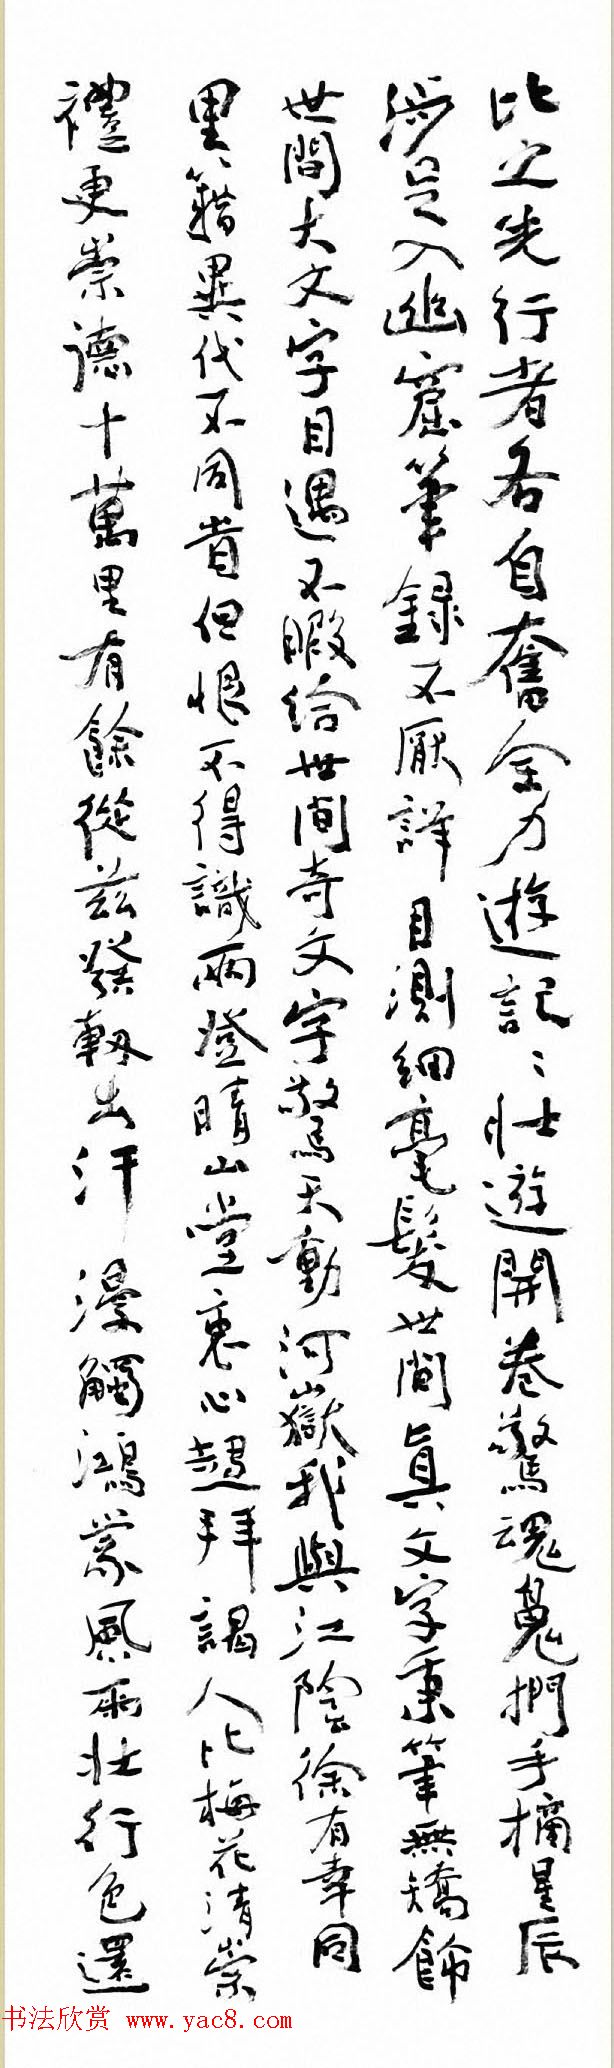 比之先行者各自奮全力遊記:壯遊開卷驚魂魄捫手摘星辰
涉足入幽窟筆錄不厭詳目測細毫髮世間真文字秉筆無矯飾
世間大文字目遇不暇給世間奇文字驚天動河嶽我與江陰徐有幸同
里籍異代不同昔但恨不得識兩登晴山堂衷心趨拜謁人比梅花清崇
禮更崇德十萬里有餘從茲發軔出汗漫觸鴻蒙風雨壯行色還
书法欣赏 www.yac8.com